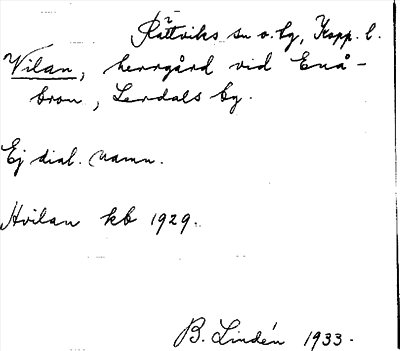 Rättviks sn o. bg, Kopp. l.
Vilan, herrgård vid Enå-
bron, Lerdals by.
Ej dial. namn.
Hvilan kb 1929.
B. Lindén 1933.